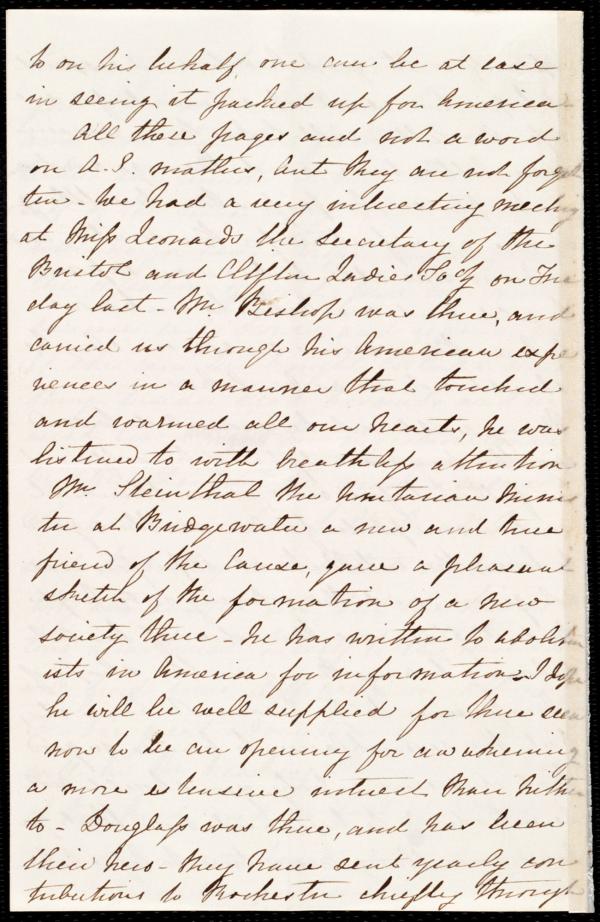 to on his behalf, one can be at ease
in seeing it packed up for America
All these pages and not a word
on A. S. matters, but they are not forgot
ten - We had a very interesting meeting
at Miss Leonards the Secretary of the
Bristol and Clifton Ladies Socy on Fri
day last - Mr Bishop was there, and
carried us through his American expe
riences in a manner that touched
and warmed all our hearts, he was
listened to with breathless attention
Mr. Steinthal the Unitarian Minis
ter at Bridgewater a new and true
friend of the Cause, gave a pleasant
sketch of the formation of a new
society there - he has written to abolition
ists in America for information - I hope
he will be well supplied for there seem
now to be an opening for awakening
a more extensive interest than hither
to - Douglass was there, and has been
their hero - they have sent yearly con
tributions to Rochester chiefly through